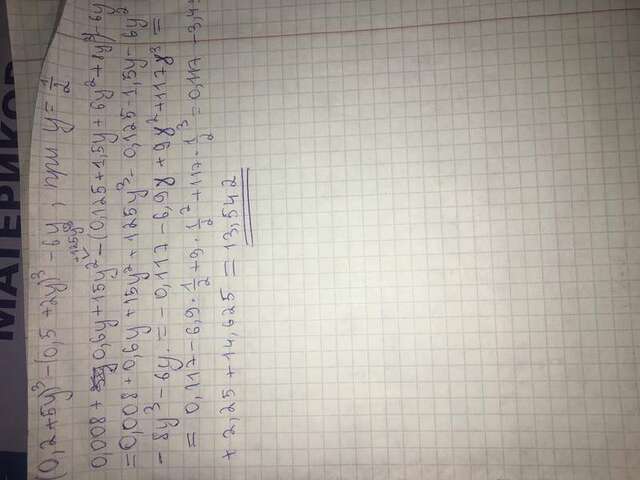 МАТЕРИКОВ
(0,2+5y)³-(0,5+2y)³-6y, при y=1/2
+125y³
0,008+0,6y+15y²-(0,125+1,5y+6y²+8y³)-6y
=0,008+0,6y+15y²+125y³-0,125-1,5y-6y²
-8y³-6y.=-0,117-6,9y+9y²+117y³=
= 0,117-6,9·1/2+9·1/2²+117·1/2³=0,117-3,45
+2,25+14,625=13,542